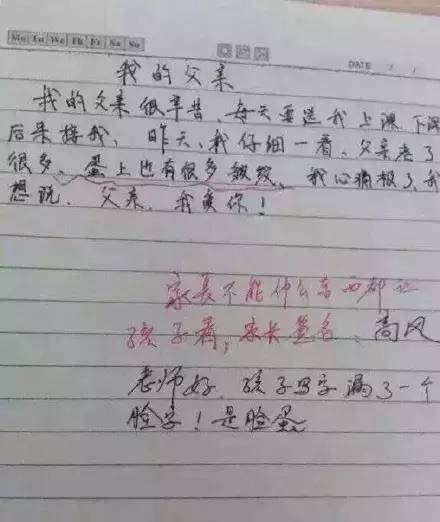 Mo Tu We Th Fr Sa Su
DATE / /
我的父亲
我的父亲很辛苦、每天要送我上课下课
后来接我、昨天、我仔细一看、父亲老了
很多、蛋上也有很多皱纹、我心痛极了、我
想说、父亲、我爱你！
家长不能什么东西都让
孩子看，家长签名、高风
老师好、孩子写字漏了一个
脸字！是脸蛋